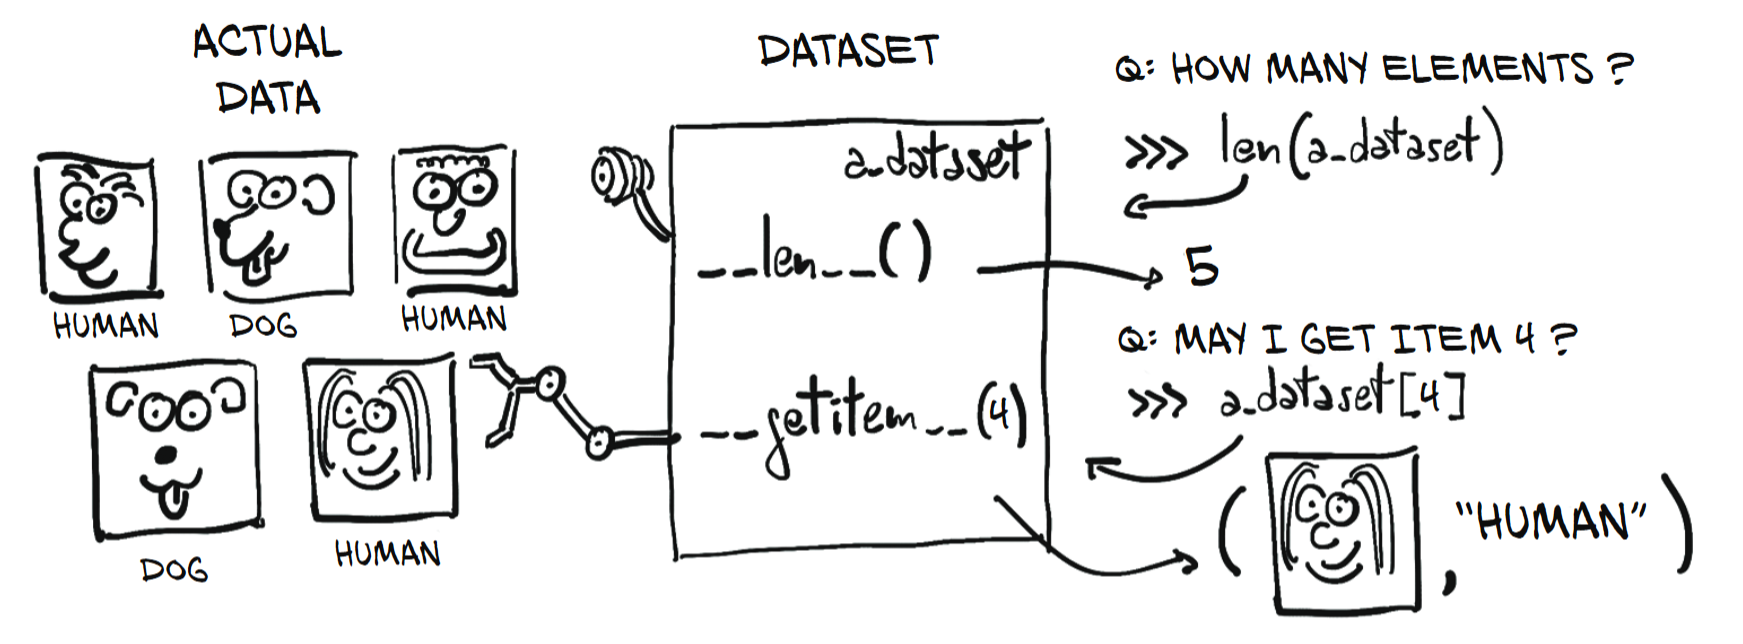 ACTUAL
DATA
HUMAN
DOG
HUMAN
DOG
HUMAN
DATASET
a_dataset
__len__()
__getitem__(4)
Q: HOW MANY ELEMENTS ?
>>> len(a_dataset)
5
Q: MAY I GET ITEM 4 ?
>>> a_dataset[4]
( , "HUMAN" )